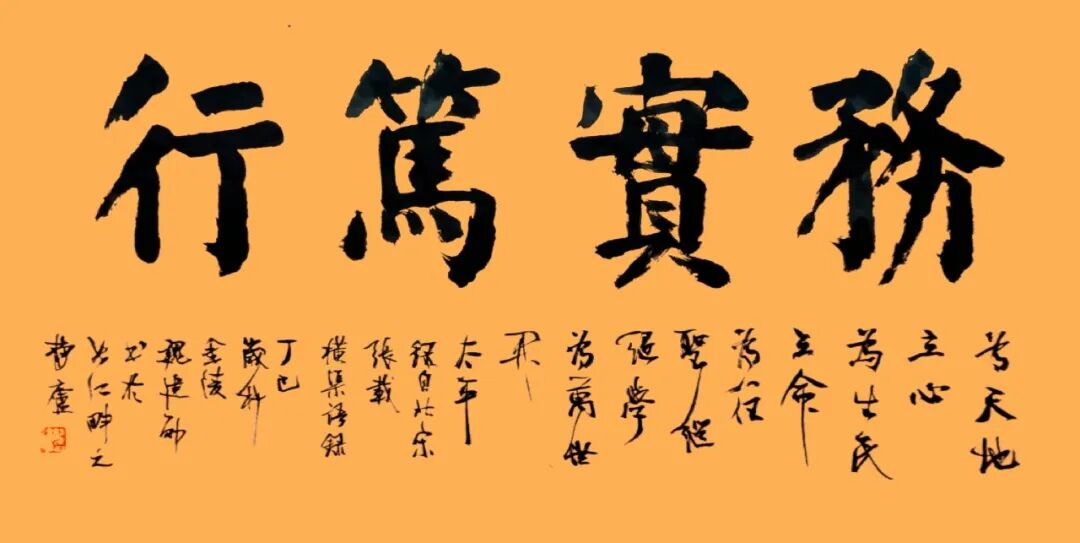 務實篤行
為天地
立心
為生民
立命
為往
聖繼
絕學
為萬世
開
太平
錄自北宋
張載
橫渠語錄
丁巳
歲秋
金陵
魏
書於
畔之